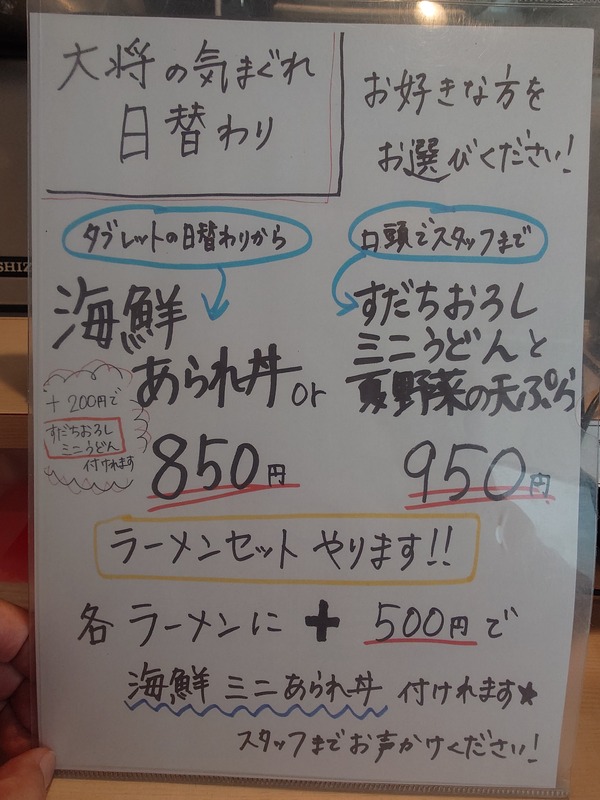 大将の気まぐれ
日替わり
お好きな方を
お選びください!
タブレットの日替わりから
海鮮
あられ丼
or
+200円で
すだちおろし
ミニうどん
付けれます
850円
口頭でスタッフまで
すだちおろし
ミニうどんと
夏野菜の天ぷら
950円
ラーメンセットやります!!
各ラーメンに+500円で
海鮮ミニあられ丼付けれます★
スタッフまでお声かけください!